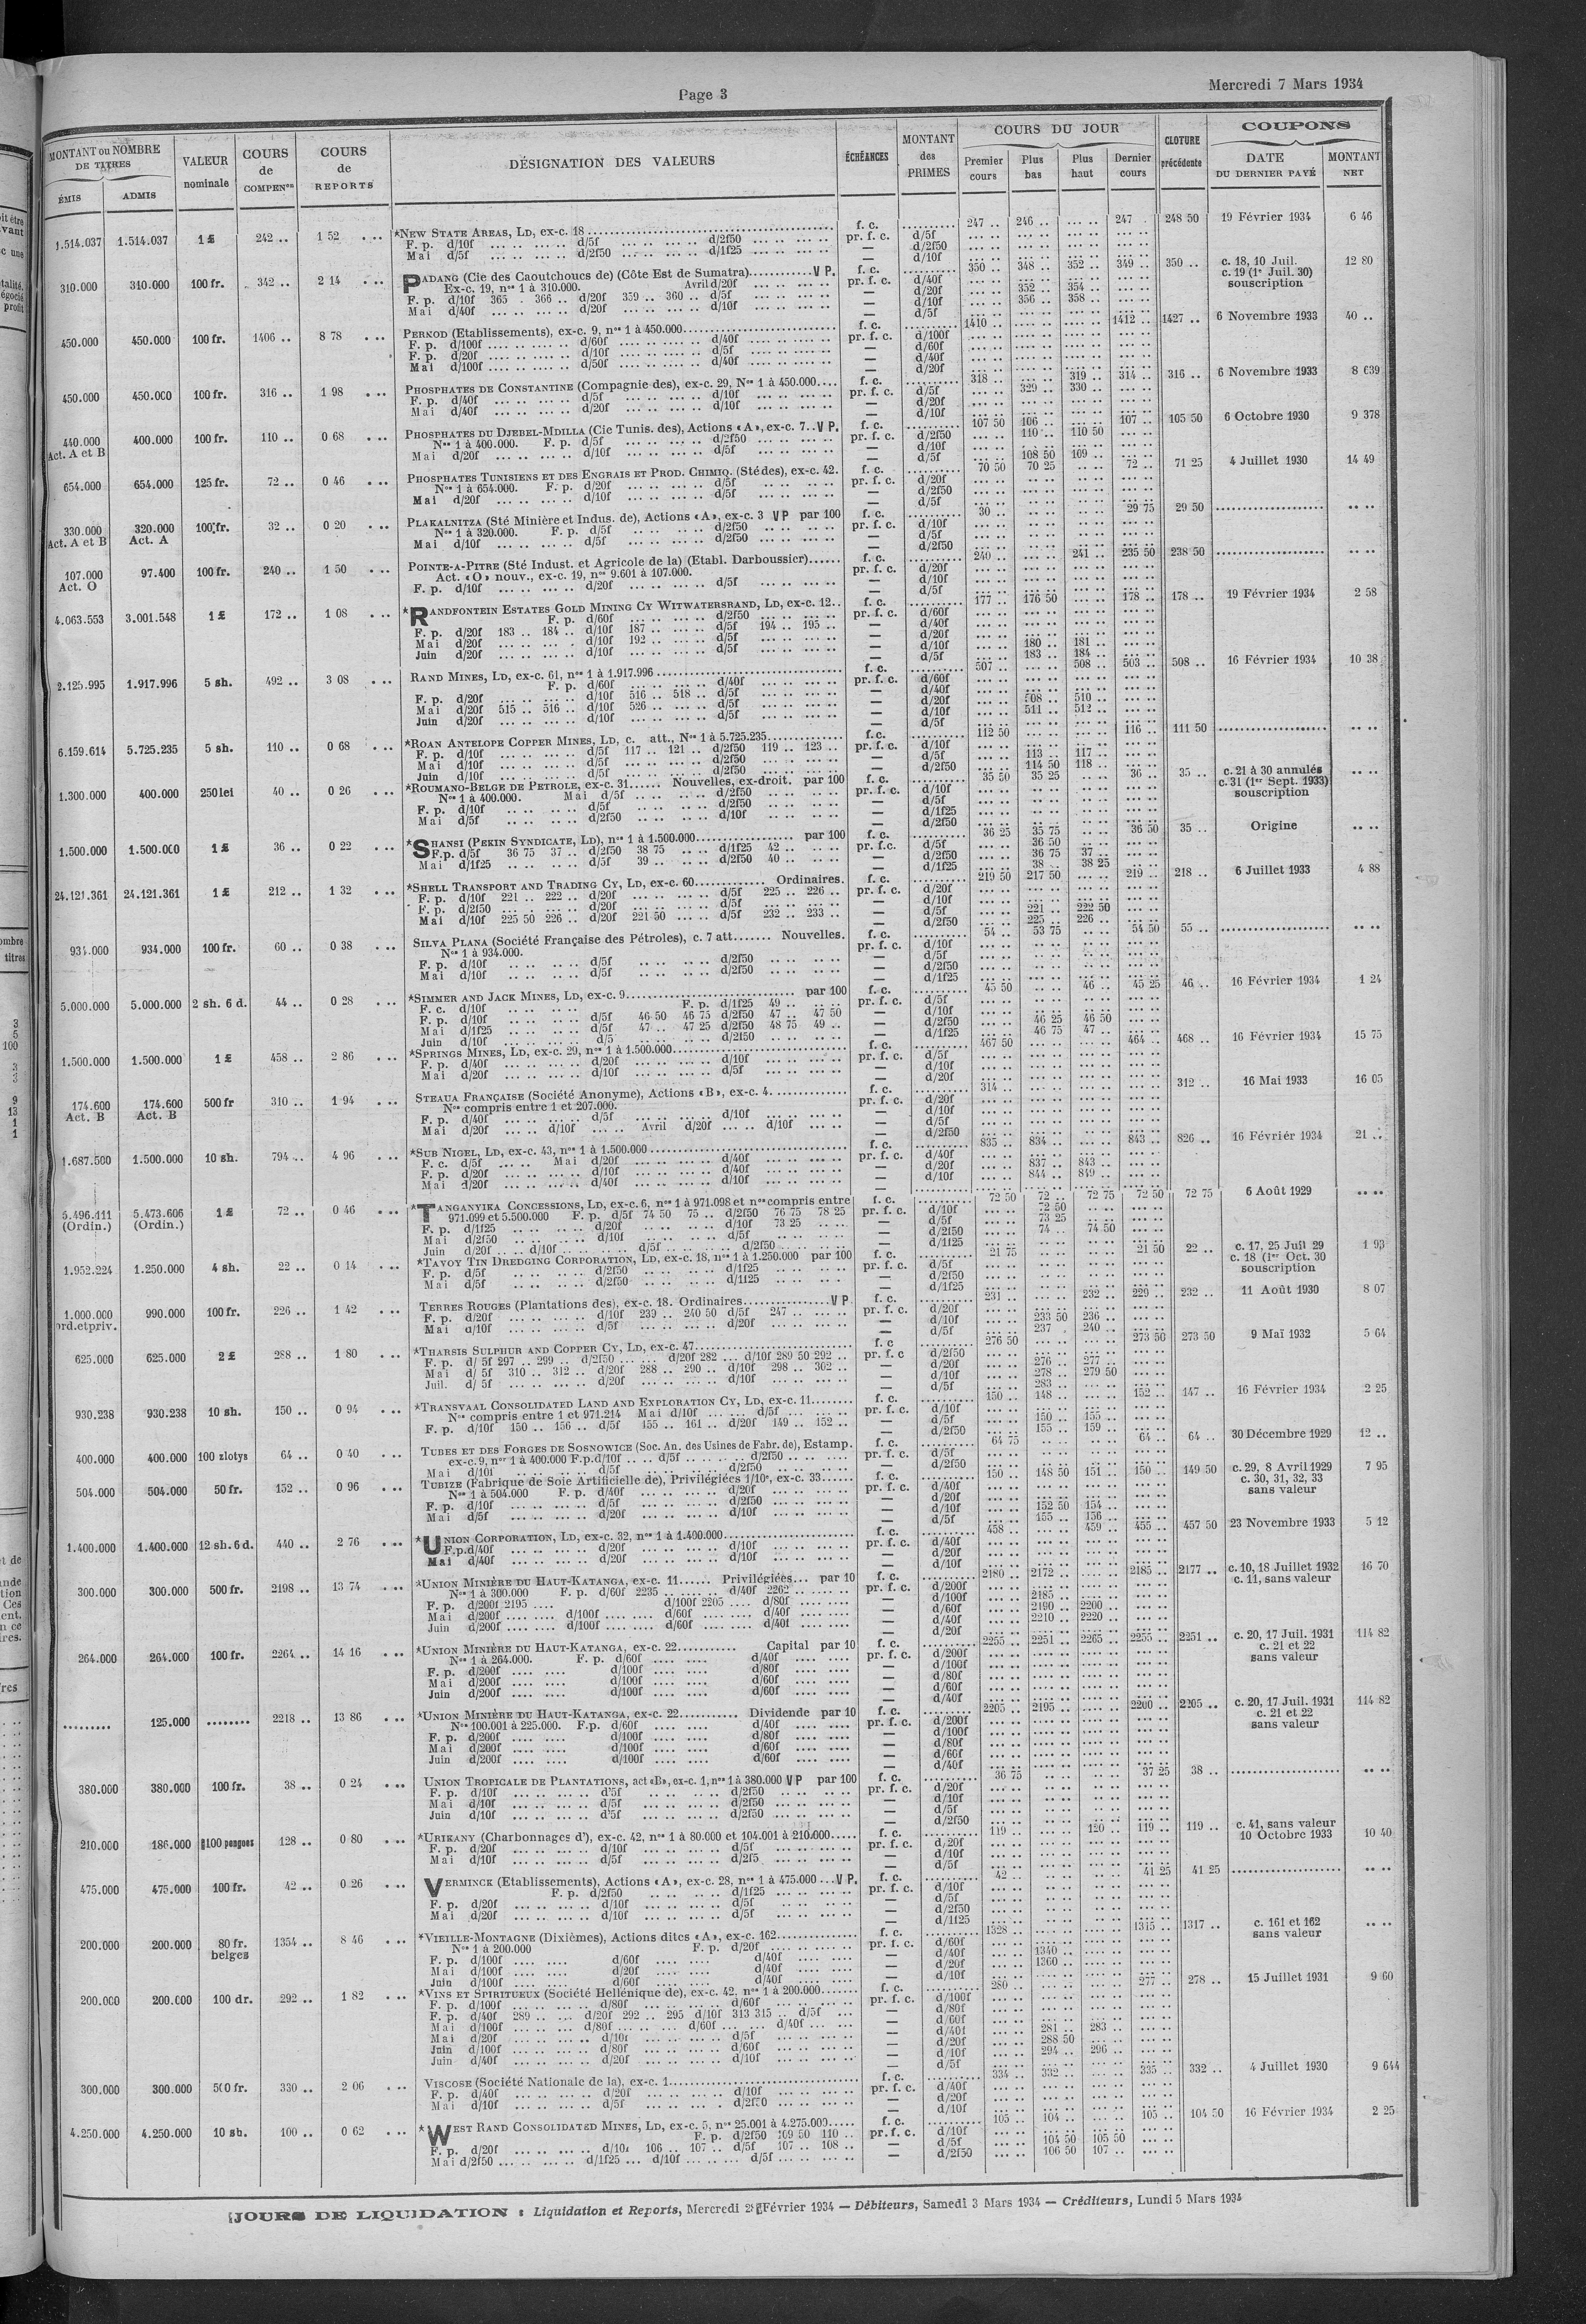 Page 3
Mercredi 7 Mars 1934
MONTANT ou NOMBRE DE TITRES
ÉMIS ADMIS
VALEUR nominale
COURS de COMPENon
COURS de REPORTS
DÉSIGNATION DES VALEURS
ÉCHÉANCES
MONTANT des PRIMES
COURS DU JOUR
Premier cours Plus bas Plus haut Dernier cours
CLOTURE précédente
COUPONS
DATE DU DERNIER PAYÉ MONTANT NET
1.514.037 1.514.037 1 £ 242 .. 1 52 *NEW STATE AREAS, LD, ex-c. 18 f. c. 247 .. 246 .. 247 . 248 50 19 Février 1934 6 46
F. p. d/10f d/5f d/2f50 pr. f. c. d/5f
Mai d/5f d/2f50 d/1f25 — d/2f50
— d/10f
310.000 310.000 100 fr. 342 .. 2 14 PADANG (Cie des Caoutchoucs de) (Côte Est de Sumatra) V P. f. c. 350 .. 348 .. 352 .. 349 .. 350 .. c. 18, 10 Juil. 12 80
Ex-c. 19, nos 1 à 310.000. Avril d/20f pr. f. c. d/40f c. 19 (1r Juil. 30)
F. p. d/10f 365 . 366 .. d/20f 359 .. 360 .. d/5f — d/20f 352 .. 354 .. souscription
Mai d/40f d/20f d/10f — d/10f 356 .. 358 ..
— d/5f
450.000 450.000 100 fr. 1406 .. 8 78 PERNOD (Etablissements), ex-c. 9, nos 1 à 450.000 f. c. 1410 .. 1412 .. 1427 .. 6 Novembre 1933 40 ..
F. p. d/100f d/60f d/40f pr. f. c. d/100f
F. p. d/20f d/10f d/5f — d/60f
Mai d/100f d/50f d/40f — d/40f
— d/20f
450.000 450.000 100 fr. 316 .. 1 98 PHOSPHATES DE CONSTANTINE (Compagnie des), ex-c. 29, Nos 1 à 450.000 f. c. 318 .. 319 .. 314 .. 316 .. 6 Novembre 1933 8 639
F. p. d/40f d/5f d/10f pr. f. c. d/5f 329 .. 330 ..
Mai d/40f d/20f d/10f — d/20f
— d/10f
440.000 400.000 100 fr. 110 .. 0 68 PHOSPHATES DU DJEBEL-MDILLA (Cie Tunis. des), Actions «A», ex-c. 7..V P. f. c. 107 50 106 .. 107 .. 105 50 6 Octobre 1930 9 378
Act. A et B Nos 1 à 400.000. F. p. d/5f d/2f50 pr. f. c. d/2f50 110 .. 110 50
Mai d/20f d/10f d/5f — d/10f
— d/5f 108 50 109 ..
654.000 654.000 125 fr. 72 .. 0 46 PHOSPHATES TUNISIENS ET DES ENGRAIS ET PROD. CHIMIQ. (Sté des), ex-c. 42. f. c. 70 50 70 25 72 .. 71 25 4 Juillet 1930 14 49
Nos 1 à 654.000. F. p. d/20f d/5f pr. f. c. d/20f
Mai d/20f d/10f d/5f — d/2f50
— d/5f
330.000 320.000 100 fr. 32 .. 0 20 PLAKALNITZA (Sté Minière et Indus. de), Actions «A», ex-c. 3 V P par 100 f. c. 30 .. 29 75 29 50
Act. A et B Act. A Nos 1 à 320.000. F. p. d/5f d/2f50 pr. f. c. d/10f
Mai d/10f d/5f d/2f50 — d/5f
— d/2f50
107.000 97.400 100 fr. 240 .. 1 50 POINTE-A-PITRE (Sté Indust. et Agricole de la) (Etabl. Darboussier) f. c. 240 .. 241 .. 235 50 238 50
Act. O Act. «O» nouv., ex-c. 19, nos 9.601 à 107.000. pr. f. c. d/20f
F. p. d/10f d/20f d/5f — d/10f
— d/5f
4.063.553 3.001.548 1 £ 172 .. 1 08 *RANDFONTEIN ESTATES GOLD MINING CY WITWATERSRAND, LD, ex-c. 12.. f. c. 177 .. 176 50 178 .. 178 .. 19 Février 1934 2 58
F. p. d/60f d/2f50 pr. f. c. d/60f
F. p. d/20f 183 .. 184 .. d/10f 187 .. d/5f 194 .. 195 .. — d/40f
Mai d/20f d/10f 192 .. d/5f — d/20f
Juin d/20f d/10f d/5f — d/10f 180 .. 181 ..
— d/5f 183 .. 184 ..
2.125.995 1.917.996 5 sh. 492 .. 3 08 RAND MINES, LD, ex-c. 61, nos 1 à 1.917.996 f. c. 507 .. 508 .. 503 .. 508 .. 16 Février 1934 10 38
F. p. d/60f d/40f pr. f. c. d/60f
F. p. d/20f d/10f 516 .. 518 .. d/5f — d/40f
Mai d/20f 515 .. 516 .. d/10f 526 .. d/5f — d/20f 508 .. 510 ..
Juin d/20f d/10f d/5f — d/10f 511 .. 512 ..
— d/5f
6.159.614 5.725.235 5 sh. 110 .. 0 68 *ROAN ANTELOPE COPPER MINES, LD, c. att., Nos 1 à 5.725.235 f. c. 112 50 116 .. 111 50
F. p. d/10f d/5f 117 .. 121 .. d/2f50 119 .. 123 .. pr. f. c. d/10f
Mai d/10f d/5f d/2f50 — d/5f 113 .. 117 ..
Juin d/10f d/5f d/2f50 — d/2f50 114 50 118 ..
1.300.000 400.000 250 lei 40 .. 0 26 *ROUMANO-BELGE DE PETROLE, ex-c. 31 Nouvelles, ex-droit. par 100 f. c. 35 50 35 25 36 .. 35 .. c. 21 à 30 annulés
Nos 1 à 400.000. Mai d/5f d/2f50 pr. f. c. d/10f c. 31 (1er Sept. 1933)
F. p. d/10f d/5f d/2f50 — d/5f souscription
Mai d/5f d/2f50 d/10f — d/1f25
— d/2f50
1.500.000 1.500.000 1 £ 36 .. 0 22 *SHANSI (PEKIN SYNDICATE, LD), nos 1 à 1.500.000 par 100 f. c. 36 25 35 75 36 50 35 .. Origine
F. p. d/5f 36 75 37 .. d/2f50 38 75 d/1f25 42 .. pr. f.c. d/5f 36 50
Mai d/1f25 d/5f 39 .. d/2f50 40 .. — d/2f50 36 75 37 ..
— d/1f25 38 .. 38 25
24.121.361 24.121.361 1 £ 212 .. 1 32 *SHELL TRANSPORT AND TRADING CY, LD, ex-c. 60 Ordinaires. f. c. 219 50 217 50 219 .. 218 .. 6 Juillet 1933 4 88
F. p. d/10f 221 .. 222 .. d/20f d/5f 225 .. 226 .. pr. f. c. d/20f
F. p. d/2f50 d/20f d/5f — d/10f
Mai d/10f 225 50 226 .. d/20f 221 50 d/5f 232 .. 233 .. — d/5f 221 .. 222 50
— d/2f50 225 .. 226 ..
934.000 934.000 100 fr. 60 .. 0 38 SILVA PLANA (Société Française des Pétroles), c. 7 att. Nouvelles. f. c. 54 .. 53 75 54 50 55 ..
Nos 1 à 934.000. pr. f. c. d/10f
F. p. d/10f d/5f d/2f50 — d/5f
Mai d/10f d/5f d/2f50 — d/2f50
— d/1f25
5.000.000 5.000.000 2 sh. 6 d. 44 .. 0 28 *SIMMER AND JACK MINES, LD, ex-c. 9 par 100 f. c. 45 50 46 .. 45 25 46 .. 16 Février 1934 1 24
F. c. d/10f F. p. d/1f25 49 .. pr. f. c. d/5f
F. p. d/10f d/5f 46 50 46 75 d/2f50 47 .. 47 50 — d/10f
Mai d/1f25 d/5f 47 .. 47 25 d/2f50 48 75 49 .. — d/2f50 46 25 46 50
Juin d/10f d/5 d/2f50 — d/1f25 46 75 47 ..
1.500.000 1.500.000 1 £ 458 .. 2 86 *SPRINGS MINES, LD, ex-c. 29, nos 1 à 1.500.000 f. c. 467 50 464 .. 468 .. 16 Février 1934 15 75
F. p. d/40f d/20f d/10f pr. f. c. d/5f
Mai d/20f d/10f d/5f — d/10f
— d/20f
174.600 174.600 500 fr 310 .. 1 94 STEAUA FRANÇAISE (Société Anonyme), Actions «B», ex-c. 4 f. c. 314 .. 312 .. 16 Mai 1933 16 05
Act. B Act. B Nos compris entre 1 et 207.000. pr. f. c. d/20f
F. p. d/40f d/5f d/10f — d/10f
Mai d/20f d/10f Avril d/20f d/10f — d/5f
— d/2f50
1.687.500 1.500.000 10 sh. 794 .. 4 96 *SUB NIGEL, LD, ex-c. 43, nos 1 à 1.500.000 f. c. 835 .. 834 .. 843 .. 826 .. 16 Février 1934 21 ..
F. c. d/5f Mai d/20f d/40f pr. f. c. d/40f
F. p. d/20f d/10f d/40f — d/20f 837 .. 843 ..
Mai d/20f d/40f d/10f — d/10f 844 .. 849 ..
5.496.411 5.473.606 1 £ 72 .. 0 46 *TANGANYIKA CONCESSIONS, LD, ex-c. 6, nos 1 à 971.098 et nos compris entre f. c. 72 50 72 .. 72 75 72 50 72 75 6 Août 1929
(Ordin.) (Ordin.) 971.099 et 5.500.000 F. p. d/5f 74 50 75 .. d/2f50 76 75 78 25 pr. f. c. d/10f 72 50
F. p. d/1f25 d/20f d/10f 73 25 — d/5f 73 25
Mai d/2f50 d/10f d/5f — d/2f50 74 .. 74 50
Juin d/20f d/10f d/5f d/2f50 — d/1f25
1.952.224 1.250.000 4 sh. 22 .. 0 14 *TAVOY TIN DREDGING CORPORATION, LD, ex-c. 18, nos 1 à 1.250.000 par 100 f. c. 21 75 21 50 22 .. c. 17, 25 Juil 29 1 93
F. p. d/5f d/2f50 d/1f25 pr. f. c. d/5f c. 18 (1er Oct. 30
Mai d/5f d/2f50 d/1f25 — d/2f50 souscription
— d/1f25
1.000.000 990.000 100 fr. 226 .. 1 42 TERRES ROUGES (Plantations des), ex-c. 18. Ordinaires V P f. c. 231 .. 232 .. 229 .. 232 .. 11 Août 1930 8 07
ord.et priv. F. p. d/20f d/10f 239 .. 240 50 d/5f 247 .. pr. f. c. d/20f
Mai d/10f d/5f d/20f — d/10f 233 50 236 ..
— d/5f 237 . 240 ..
625.000 625.000 2 £ 288 .. 1 80 *THARSIS SULPHUR AND COPPER CY, LD, ex-c. 47 f. c 276 50 273 50 273 50 9 Mai 1932 5 64
F. p. d/ 5f 297 .. 299 .. d/2f50 d/20f 282 d/10f 289 50 292 .. pr. f. c d/2f50
Mai d/ 5f 310 .. 312 .. d/20f 288 .. 290 .. d/10f 298 .. 302 .. — d/20f 276 .. 277 ..
Juil. d/ 5f d/20f d/10f — d/10f 278 .. 279 50
— d/5f 283 ..
930.238 930.238 10 sh. 150 .. 0 94 *TRANSVAAL CONSOLIDATED LAND AND EXPLORATION CY, LD, ex-c. 11 f. c. 150 .. 148 .. 152 .. 147 .. 16 Février 1934 2 25
Nos compris entre 1 et 971.214 Mai d/10f d/5f pr. f. c. d/10f
F. p. d/10f 150 .. 156 .. d/5f 155 .. 161 .. d/20f 149 .. 152 .. — d/5f 150 .. 155 ..
— d/2f50 155 .. 159 ..
400.000 400.000 100 zlotys 64 .. 0 40 TUBES ET DES FORGES DE SOSNOWICE (Soc. An. des Usines de Fabr. de), Estamp. f. c. 64 75 64 .. 64 .. 30 Décembre 1929 12 ..
ex-c. 9, nos 1 à 400.000 F.p. d/10f d/5f d/2f50 pr. f. c. d/5f
Mai d/10f d/5f d/2f50 — d/2f50
504.000 504.000 50 fr. 152 .. 0 96 TUBIZE (Fabrique de Soie Artificielle de), Privilégiées 1/10e, ex-c. 33 f. c. 150 .. 148 50 151 .. 150 .. 149 50 c. 29, 8 Avril 1929 7 95
Nos 1 à 504.000 F. p. d/40f d/20f pr. f. c. d/40f c. 30, 31, 32, 33
F. p. d/10f d/5f d/2f50 — d/20f sans valeur
Mai d/5f d/20f d/10f — d/10f 152 50 154 ..
— d/5f 155 .. 156 ..
1.400.000 1.400.000 12 sh. 6 d. 440 .. 2 76 *UNION CORPORATION, LD, ex-c. 32, nos 1 à 1.400.000 f. c. 458 .. 459 .. 455 .. 457 50 23 Novembre 1933 5 12
F.p. d/40f d/20f d/10f pr. f. c. d/40f
Mai d/40f d/20f d/10f — d/20f
— d/10f
300.000 300.000 500 fr. 2198 .. 13 74 *UNION MINIÈRE DU HAUT-KATANGA, ex-c. 11 Privilégiées par 10 f. c. 2180 .. 2172 .. 2185 .. 2177 .. c. 10, 18 Juillet 1932 16 70
Nos 1 à 300.000 F. p. d/60f 2235 d/40f 2262 pr. f. c. d/200f c. 11, sans valeur
F. p. d/200f 2195 d/100f 2205 d/80f — d/100f 2185 ..
Mai d/200f d/100f d/60f d/40f — d/60f 2190 .. 2200 ..
Juin d/200f d/100f d/60f d/40f — d/40f 2210 .. 2220 ..
— d/20f
264.000 264.000 100 fr. 2264 .. 14 16 *UNION MINIÈRE DU HAUT-KATANGA, ex-c. 22 Capital par 10 f. c. 2255 .. 2251 .. 2265 .. 2255 .. 2251 .. c. 20, 17 Juil. 1931 114 82
Nos 1 à 264.000. F. p. d/60f d/40f pr. f. c. d/200f c. 21 et 22
F. p. d/200f d/100f d/80f — d/100f sans valeur
Mai d/200f d/100f d/60f — d/80f
Juin d/200f d/100f d/60f — d/60f
— d/40f
125.000 2218 .. 13 86 *UNION MINIÈRE DU HAUT-KATANGA, ex-c. 22 Dividende par 10 f. c. 2205 .. 2195 .. 2200 .. 2205 .. c. 20, 17 Juil. 1931 114 82
Nos 100.001 à 225.000. F.p. d/60f d/40f pr. f. c. d/200f c. 21 et 22
F. p. d/200f d/100f d/80f — d/100f sans valeur
Mai d/200f d/100f d/60f — d/80f
Juin d/200f d/100f d/60f — d/60f
— d/40f
380.000 380.000 100 fr. 38 .. 0 24 UNION TROPICALE DE PLANTATIONS, act «B», ex-c. 1, nos 1 à 380.000 V P par 100 f. c. 36 75 37 25 38 ..
F. p. d/10f d/5f d/2f50 pr. f. c. d/20f
Mai d/10f d/5f d/2f50 — d/10f
Juin d/10f d/5f d/2f50 — d/5f
— d/2f50
210.000 186.000 100 pengoes 128 .. 0 80 *URIKANY (Charbonnages d'), ex-c. 42, nos 1 à 80.000 et 104.001 à 210.000 f. c. 119 .. 120 .. 119 .. 119 .. c. 41, sans valeur 10 40
F. p. d/20f d/10f d/5f pr. f. c. d/20f 10 Octobre 1933
Mai d/10f d/5f d/2f5 — d/10f
— d/5f
475.000 475.000 100 fr. 42 .. 0 26 VERMINCK (Etablissements), Actions «A», ex-c. 28, nos 1 à 475.000 V P. f. c. 42 .. 41 25 41 25
F. p. d/2f50 d/1f25 pr. f. c. d/10f
F. p. d/20f d/10f d/5f — d/5f
Mai d/20f d/10f d/5f — d/2f50
— d/1f25
200.000 200.000 80 fr. belges 1354 .. 8 46 *VIEILLE-MONTAGNE (Dixièmes), Actions dites «A», ex-c. 162 f. c. 1328 .. 1315 .. 1317 .. c. 161 et 162
Nos 1 à 200.000 F. p. d/20f pr. f. c. d/60f sans valeur
F. p. d/100f d/60f d/40f — d/40f 1340 ..
Mai d/100f d/20f d/40f — d/20f 1360 ..
Juin d/100f d/60f d/40f — d/10f
200.000 200.000 100 dr. 292 .. 1 82 *VINS ET SPIRITUEUX (Société Hellénique de), ex-c. 42, nos 1 à 200.000 f. c. 280 .. 277 .. 278 .. 15 Juillet 1931 9 60
F. p. d/100f d/80f d/60f pr. f. c. d/100f
F. p. d/40f 289 .. d/20f 292 .. 295 d/10f 313 315 .. d/5f — d/80f
Mai d/100f d/80f d/60f d/40f — d/60f
Mai d/20f d/10f d/5f — d/40f 281 .. 283 ..
Juin d/100f d/80f d/60f — d/20f 288 50
Juin d/40f d/20f d/10f — d/10f 294 .. 296 ..
— d/5f
300.000 300.000 500 fr. 330 .. 2 06 VISCOSE (Société Nationale de la), ex-c. 1 f. c. 334 .. 332 .. 335 .. 332 .. 4 Juillet 1930 9 644
F. p. d/40f d/20f d/10f pr. f. c. d/40f
Mai d/10f d/5f d/2f50 — d/20f
— d/10f
4.250.000 4.250.000 10 sh. 100 .. 0 62 *WEST RAND CONSOLIDATED MINES, LD, ex-c. 5, nos 25.001 à 4.275.000 f. c. 105 .. 104 .. 105 .. 104 50 16 Février 1934 2 25
F. p. d/2f50 109 50 110 .. pr. f. c. d/10f
F. p. d/20f d/10f 106 .. 107 .. d/5f 107 .. 108 .. — d/5f 104 50 105 50
Mai d/2f50 d/1f25 d/10f d/5f — d/2f50 106 50 107 ..
JOURS DE LIQUIDATION : Liquidation et Reports, Mercredi Février 1934 — Débiteurs, Samedi 3 Mars 1934 — Créditeurs, Lundi 5 Mars 1934